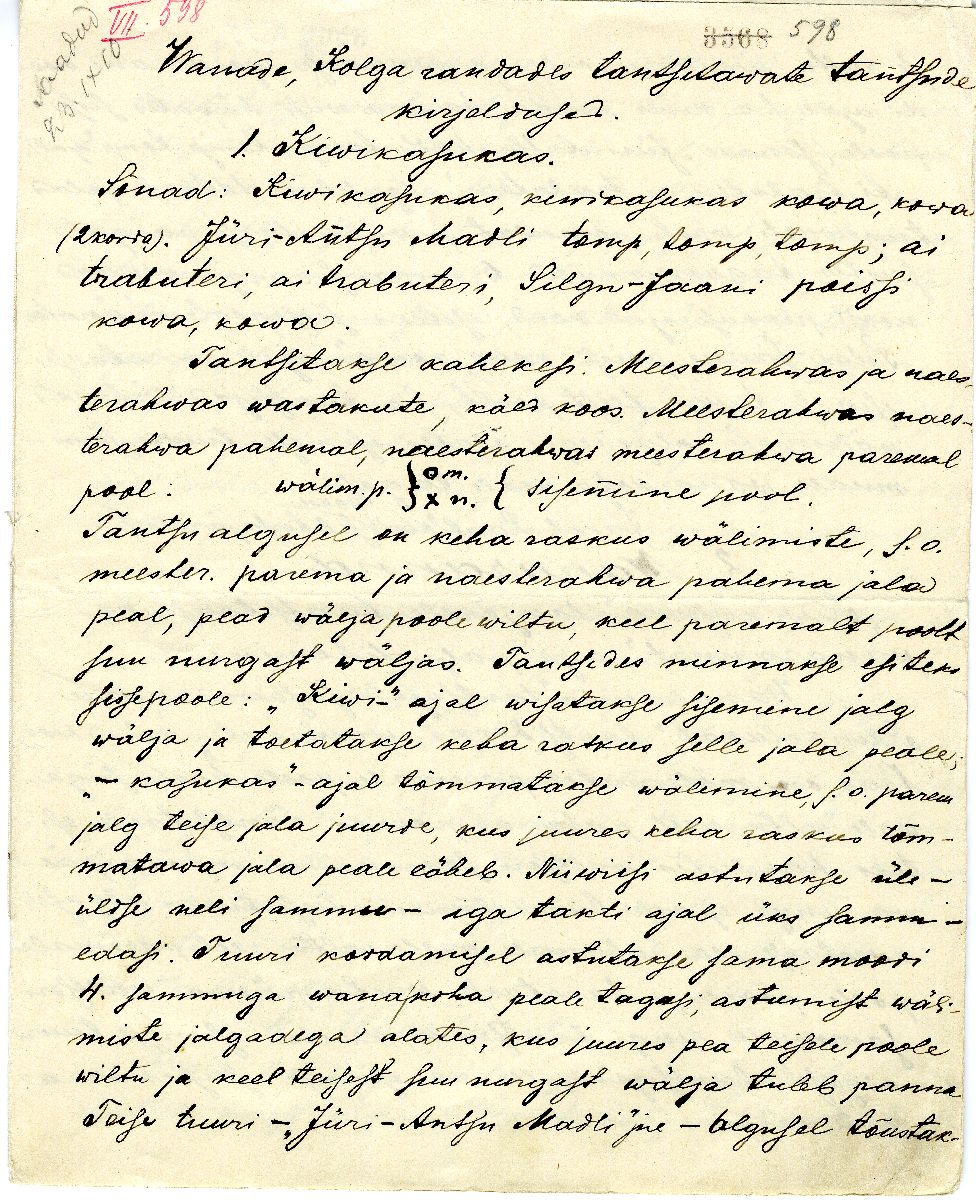 VII. 598
3568 598
Saadud
23. IX 10
Wanade, Kolga randades tantsitawate tantsude
kirjeldused.
1. Kiwikasukas.
Sõnad: Kiwikasukas, kiwikasukas kowa, kowa
(2 korda). Jüri-Antsu Madli tomp, tomp, tomp; ai
trabuteri, ai trabuteri, Silgu-Jaani poissi
kowa, kowa.
Tantsitakse kahekesi. Meesterahwas ja naes-
terahwas wastakute, käed koos. Meesterahwas naes-
terahwa pahemal, naesterahwas meesterahwa paremal
pool: wälim. p. } o m. x n. { sisemine pool.
Tantsu algusel on keha raskus wälimiste, s. o.
meester. parema ja naesterahwa pahema jala
peal, pead wälja poole wiltu, keel paremalt poolt
suu nurgast wäljas. Tantsides minnakse esiteks
sissepoole: „Kiwi-" ajal wisatakse sisemine jalg
wälja ja toetatakse keha raskus selle jala peale;
„- kasukas"- ajal tõmmatakse wälimine, s. o. parem
jalg teise jala juurde, kus juures keha raskus tõm-
matawa jala peale läheb. Niiwiisi astutakse üle-
üldse neli sammu - iga takti ajal üks samm -
edasi. Tuuri kordamisel astutakse sama moodi
4. sammuga wana/koha peale tagasi, astumist wäli-
miste jalgadega alates, kus juures pea teisele poole
wiltu ja keel teisest suu nurgast wälja tuleb panna
Teise tuuri - „Jüri-Antsu Madli" jne - algusel tõustak-